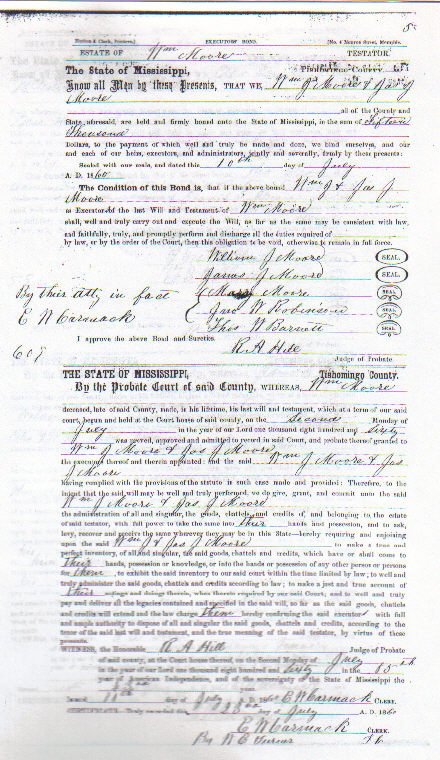 EXECUTORS BOND.
ESTATE OF Wm Moore TESTATOR
The State of Mississippi, Tishomingo County
Know all Men by these Presents, THAT WE, Wm J Moore & Jas J
Moore
all of the County and
State, aforesaid, are held and firmly bound unto the State of Mississippi, in the sum of
Thousand
Dollars, to the payment of which well and truly be made and done, we bind ourselves, and our
and each of our heirs, executors, and administrators, jointly and severally, firmly by these presents:
Sealed with our seals, and dated this 10th day of July
A. D. 1860
The Condition of this Bond is, that if the above bound Wm J & Jas J
Moore
as Executors of the last Will and Testament of Wm Moore
shall, well and truly carry out and execute the Will, as far as the same may be consistent with law,
and faithfully, truly, and promptly perform and discharge all the duties required of
by law, or by the order of the Court, then this obligation to be void, otherwise to remain in full force.
William J Moore SEAL.
James J Moore SEAL.
By their atty in fact Moore SEAL
E N Carmack W Robinson SEAL
Thos W Barnett SEAL
I approve the above Bond and Sureties.
R A Hill
Judge of Probate
THE STATE OF MISSISSIPPI, Tishomingo County.
By the Probate Court of said County, WHEREAS, Wm Moore
deceased, late of said County, made, in his lifetime, his last will and testment, which at a term of our said
court, begun and held at the Court house of said county, on the Second Monday of
July in the year of our Lord one thousand eight hundred and Sixty
was proved, approved and admitted to record in said Court, and probate thereof granted to
Wm J Moore & Jas J Moore
the executors thereof and therein appointed: and the said Wm J Moore & Jas
J Moore
having complied with the provisions of the statute is such case made and provided: Therefore, to the
intent that the said will may be well and truly performed, we do give, grant, and commit unto the said
Wm J Moore & Jas J Moore
the administration of all and singular, the goods, chattels, and credits of, and belonging to the estate
of said testator, with full power to take the same into their hands and possession, and to ask,
levy, recover and receive the same wherever they may be in this State—hereby requiring and enjoining
upon the said Wm J & Jas J Moore to make a true and
perfect inventory, of all and singular, the said goods, chattels and credits, which have or shall come to
their hands, possession or knowledge, or into the hands or possession of any other person or persons
for them, to exhibit the said inventory to our said court within the time limited by law; to well and
truly administer the said goods, chattels and credits according to law; to make a just and true account of
their actings and doings therein, when thereto required by our said Court; and to well and truly
pay and deliver all the legacies contained and specified in the said will, so far as the said goods, chattels
and credits will extend and the law charge them hereby confirming the said executors with full
and ample authority to dispose of all and singular the said goods, chattels and credits, according to the
tenor of the said last will and testament, and the true meaning of the said testator, by virtue of these
presents.
WITNESS, the Honorable R A Hill Judge of Probate
of said county, at the Court house thereof, on the Second Monday of July
in the year of our Lord one thousand eight hundred and Sixty in the 85th
year of American Independence, and of the sovereignty of the State of Mississippi the
Issued 11th day of July A. D. 1860 E N Carmack CLERK.
CERTIFICATE. Truly recorded this day of July A. D. 1860
E N Carmack CLERK.
By